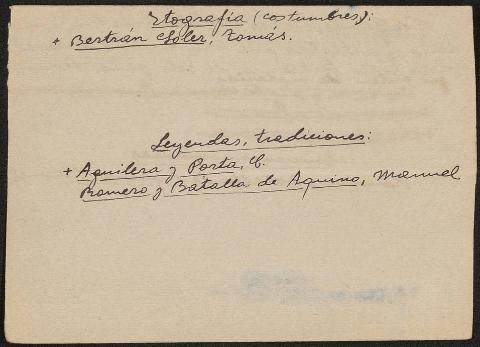 Etografía (costumbres):
+ Bertrán Soler, Tomás.
Leyendas, tradiciones:
+ Aguilera y Porta, C.
Romero y Batalla de Aquino, Manuel